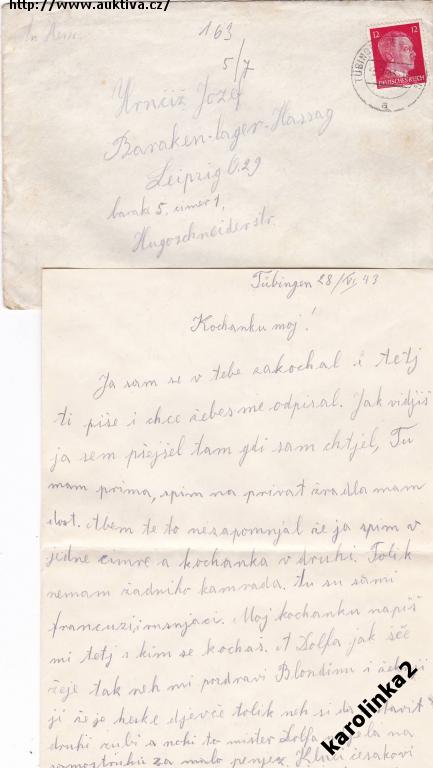 http://www.auktiva.cz/
163
5/7
12 12
DEUTSCHES REICH
TÜBINGEN
a
Hrnčiž Jozef
Baraken-lager-Hassag
Leipzig O.29
barak 5, cimer 1,
Hugoschneiderstr.
Tübingen 28/VI 43
Kochanku moj!
Ja sam se v tebe zakochal i tetj
ti piše i chce žebes mě odpisal. Jak vidjiš
ja sem pšejšel tam gdi sam chtjěl, Tu
mam prima, spim na privat žradla mam
dost. Abem te to nezapomnjal že ja spim v
jedne cimre a kochanka v druhi. Tolik
nemam žadniho kamrada. Tu su sami
francuzi, Moj kochanku napiš
mi tetj s kim se kochaš. A Dolfa jak šče
žeje tak neh mi pozdravi Blondinu i
ji že je heske djevče tolik neh si da
druhi zubi a nohi to mister Dolfa na
za malo penjez.
karolinka2